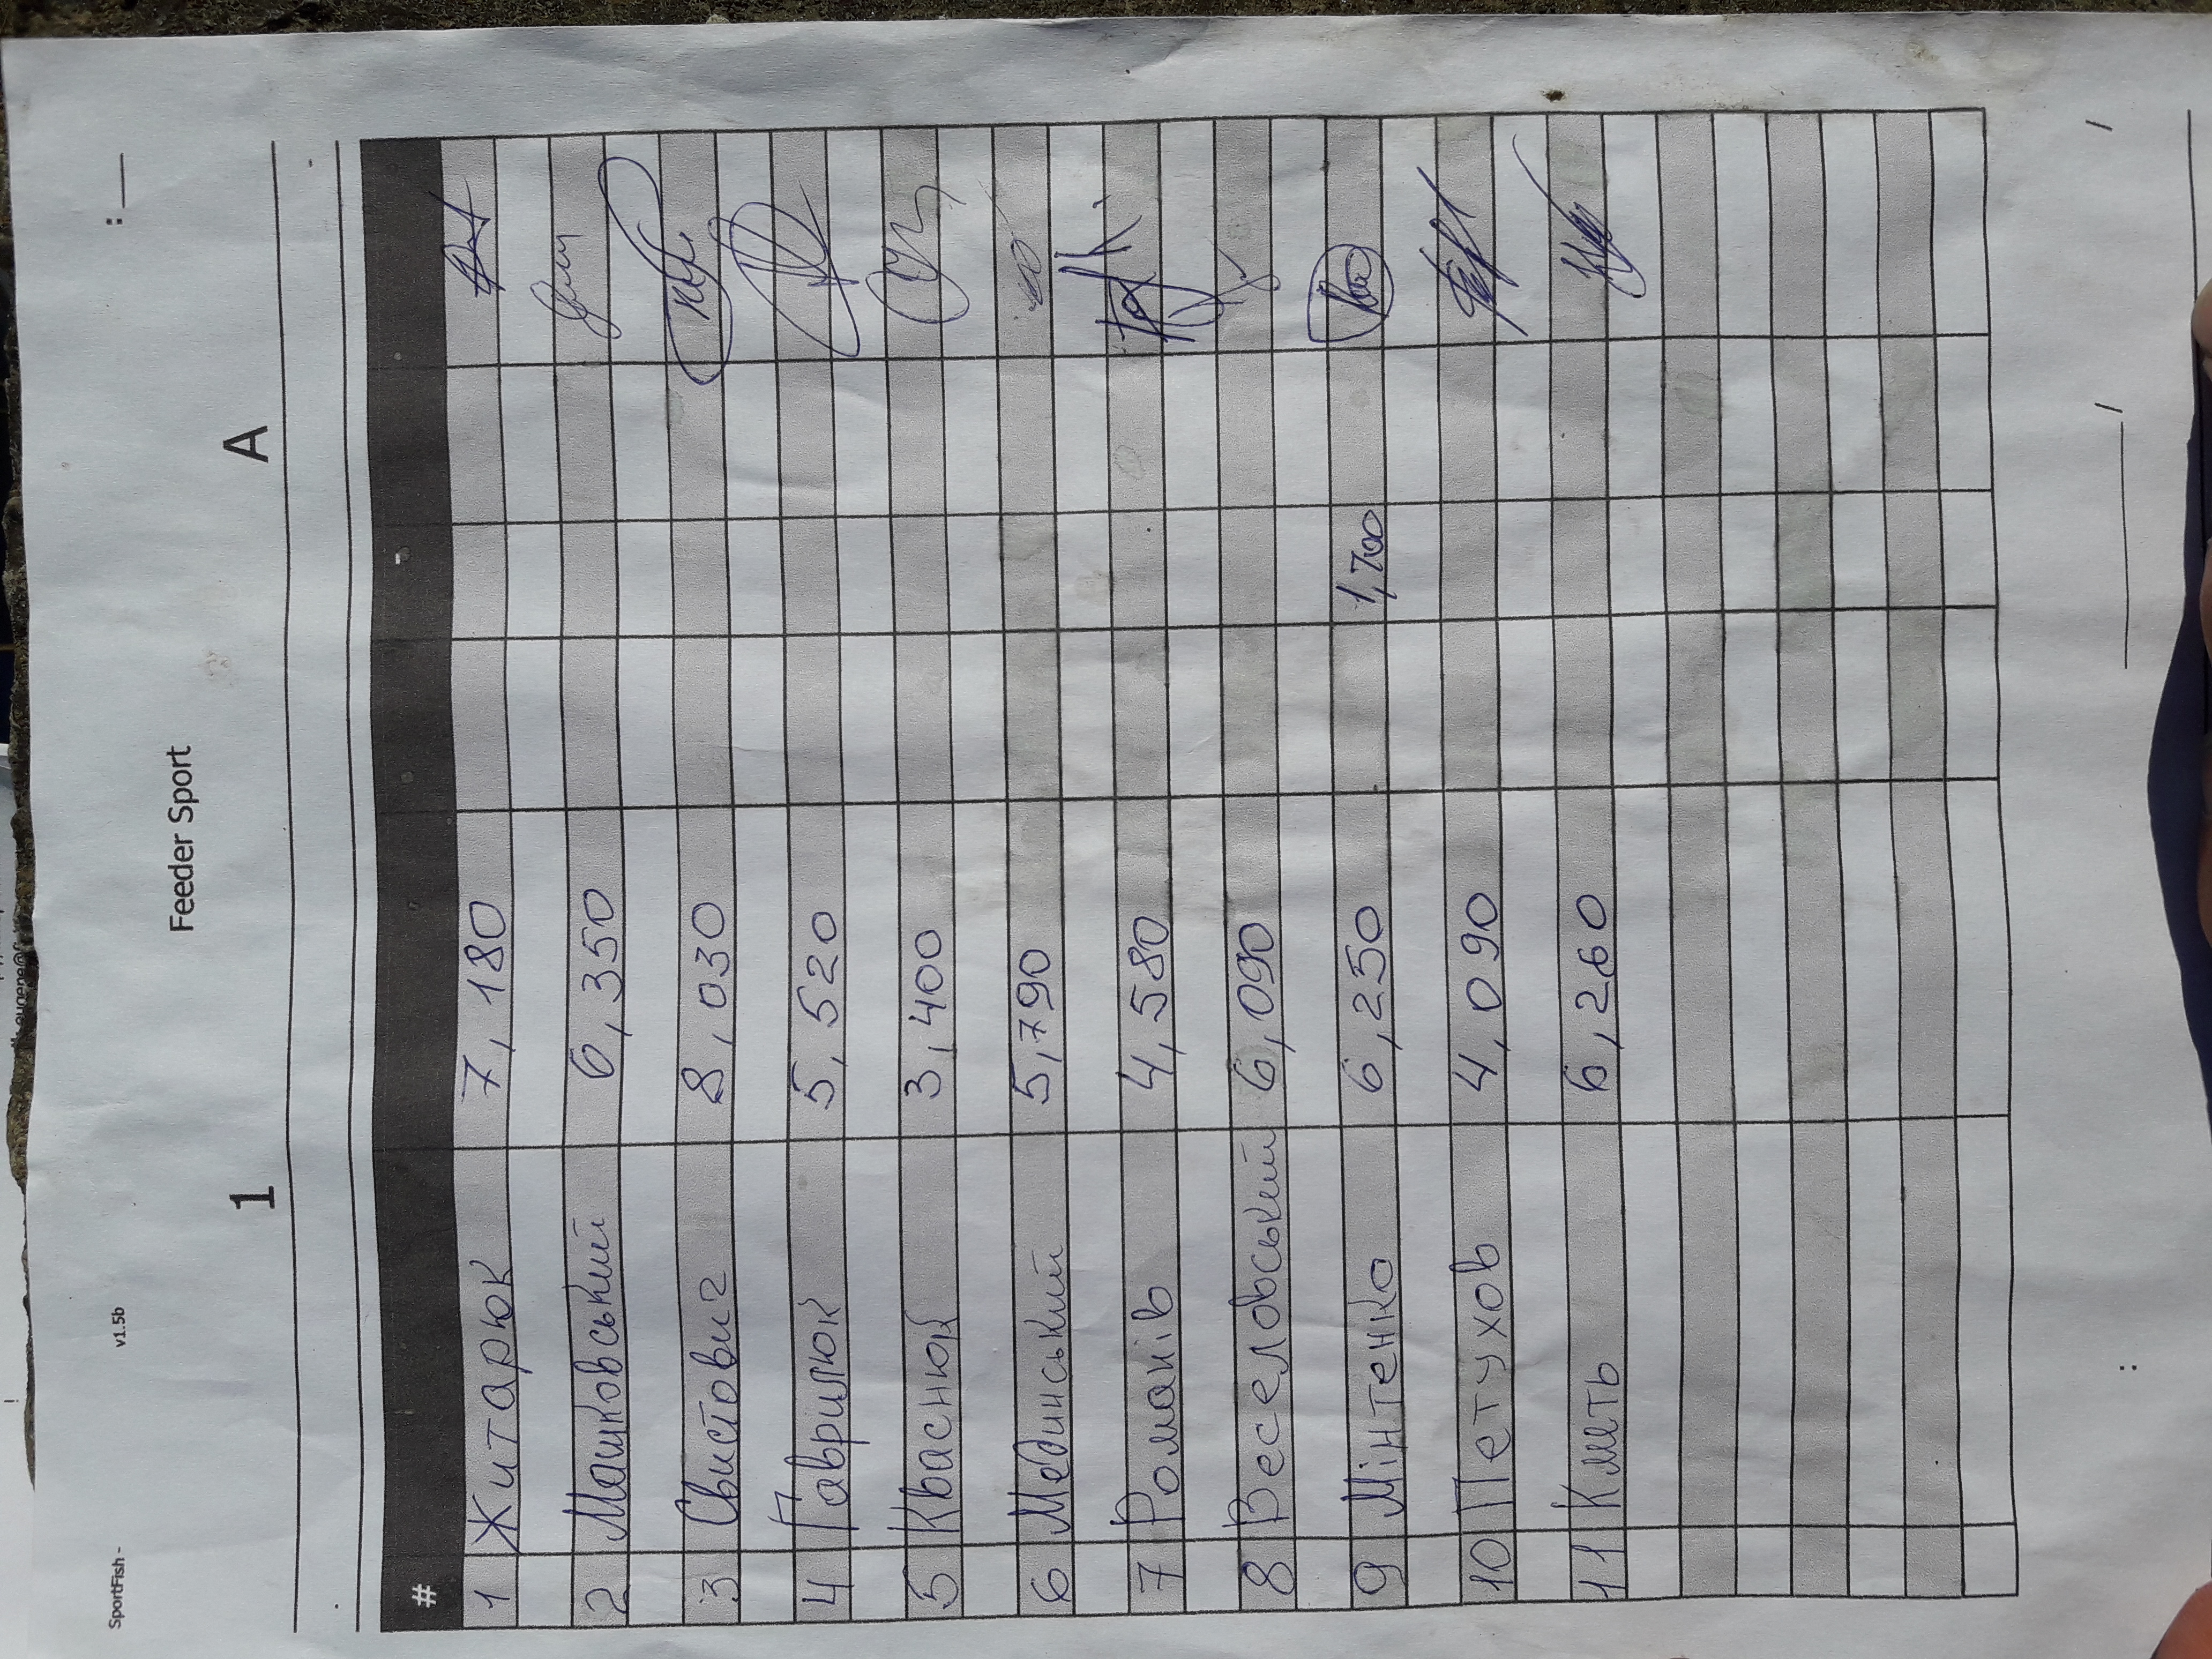 SportFish - v1.5b : __
Feeder Sport
1 A
# -
1 Житарюк 7,180
2 Машковський 6,350
3 Свистович 8,030
4 Гаврилюк 5,520
5 Кваснюк 3,400
6 Мединський 5,790
7 Романів 4,580
8 Веселовський 6,090
9 Мінтенко 6,250 1,700
10 Петухов 4,090
11 Кметь 6,260
: ________ / /